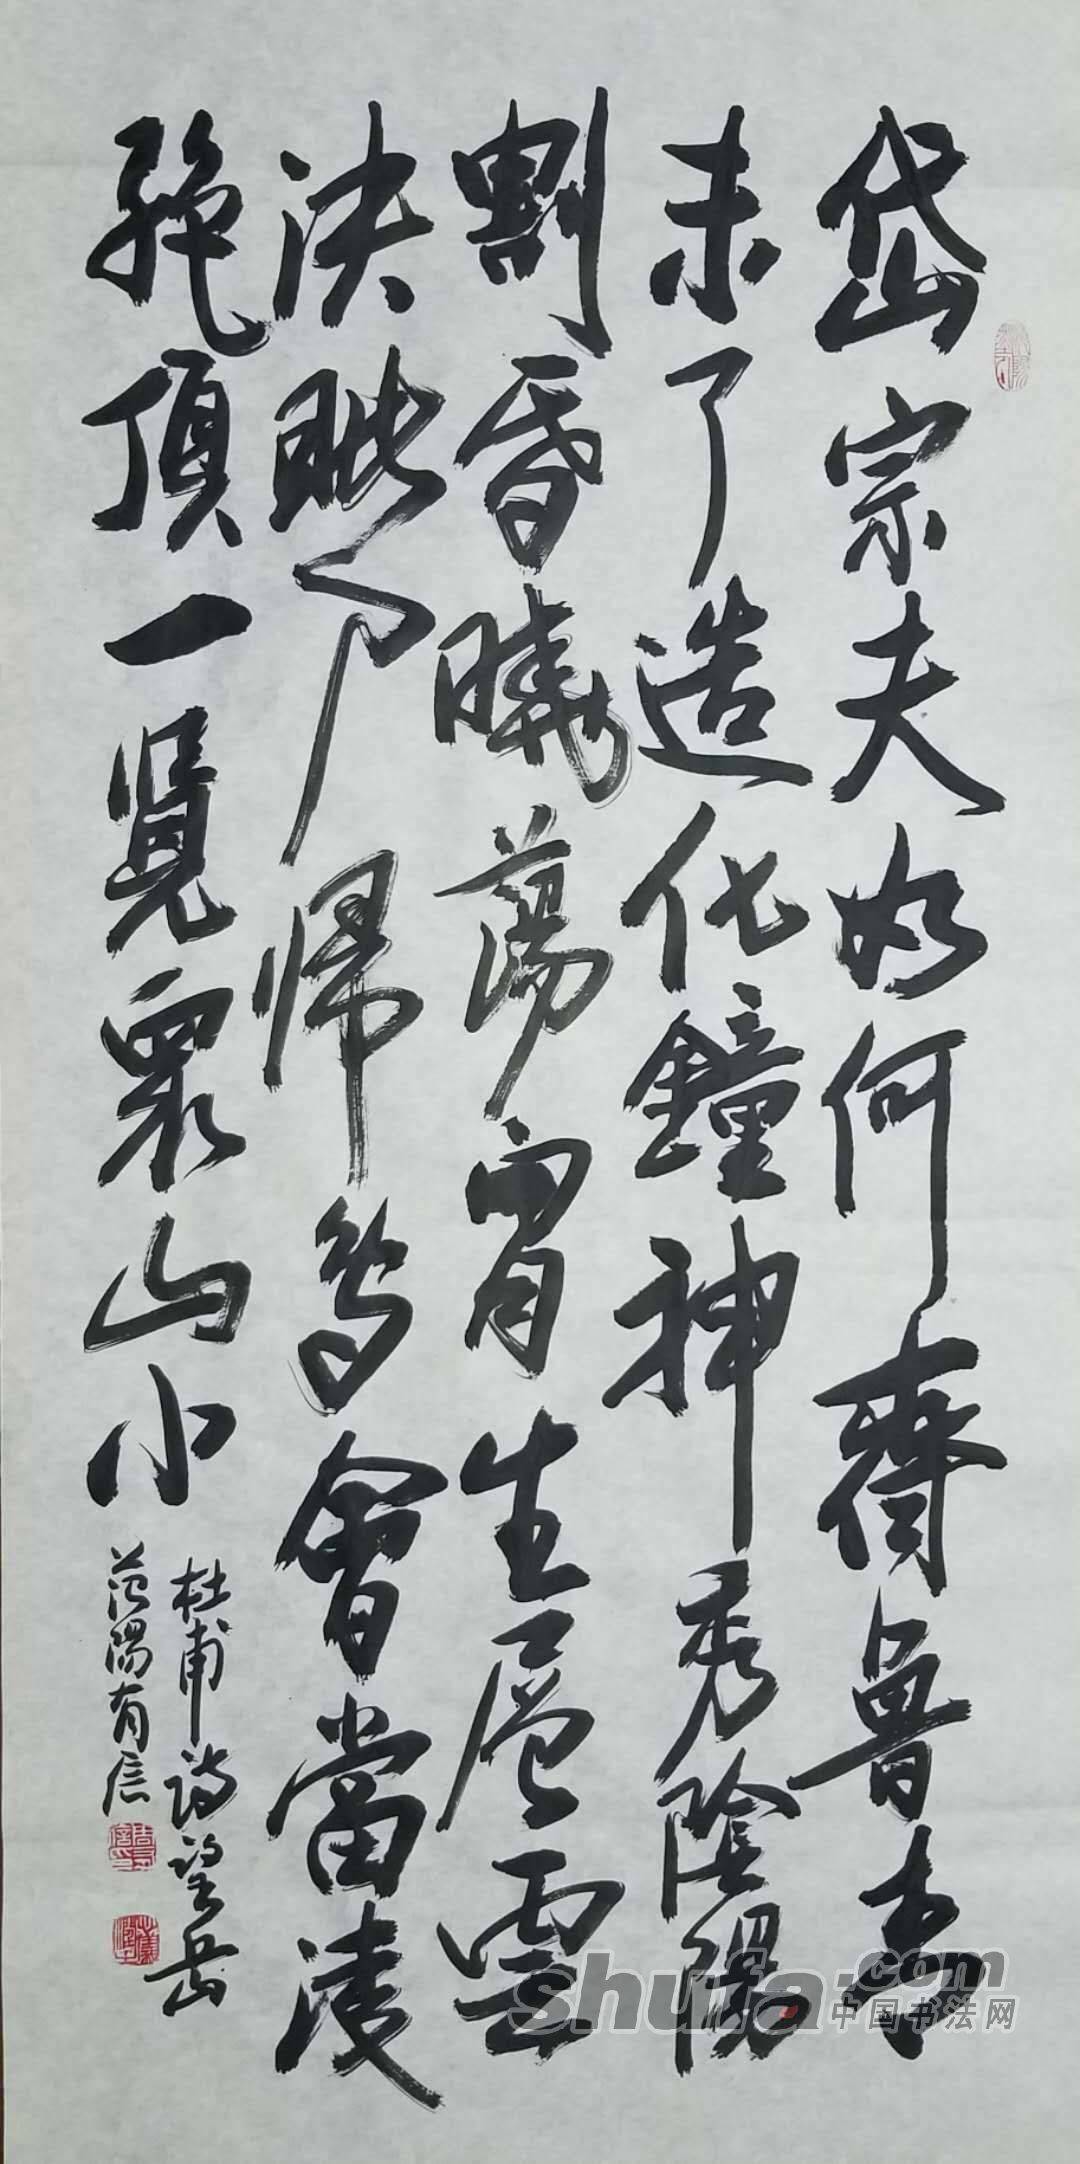 岱宗夫如何齊魯青
未了造化鐘神秀陰陽
割昏曉蕩胷生層雲
決眦入歸鳥會當凌
絶頂一覽衆山小
杜甫詩望岳
范陽有信
shufa.com
中国书法网